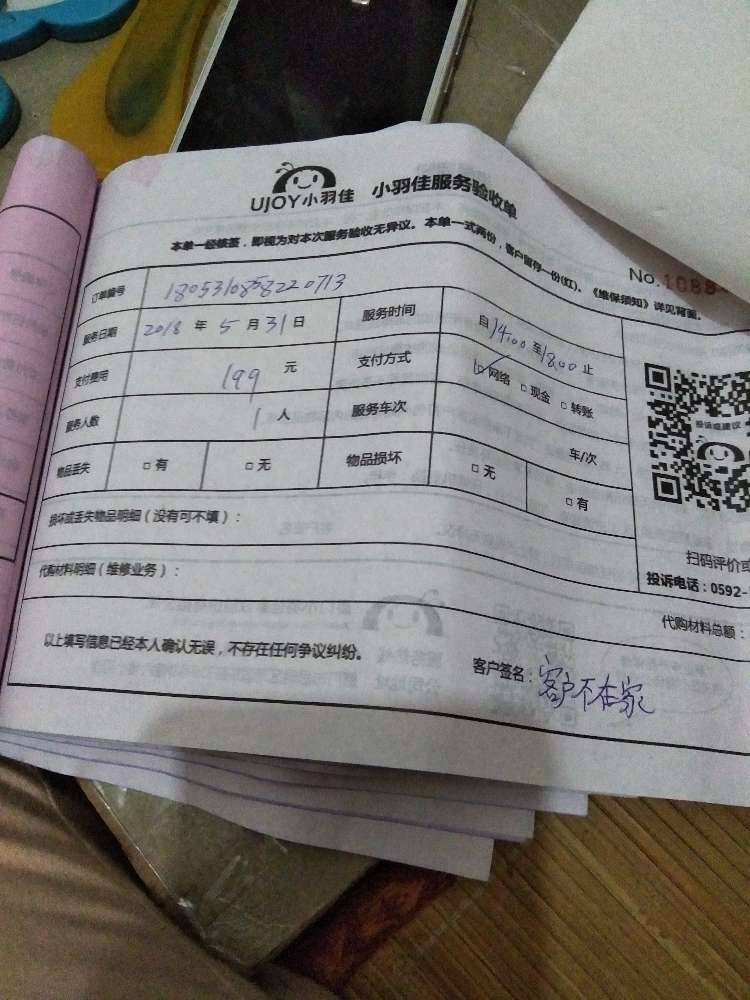 UJOY小羽佳 小羽佳服务验收单
本单一经核签，即视为对本次服务验收无异议。本单一式两份，客户留存一份(红)、《维保须知》详见背面。
No. 1088
订单编号 1805310858220713
服务日期 2018 年 5 月 31 日 服务时间 自 14:00 至 18:00 止
支付费用 199 元 支付方式 ☑ 网络 □ 现金 □ 转账
服务人数 1 人 服务车次 车/次
物品丢失 □ 有 □ 无 物品损坏 □ 无 □ 有
投诉或建议
损坏或丢失物品明细（没有可不填）：
扫码评价或
投诉电话：0592-
代购材料明细（维修业务）：
代购材料总额：
以上填写信息已经本人确认无误，不存在任何争议纠纷。 客户签名：客户不在家